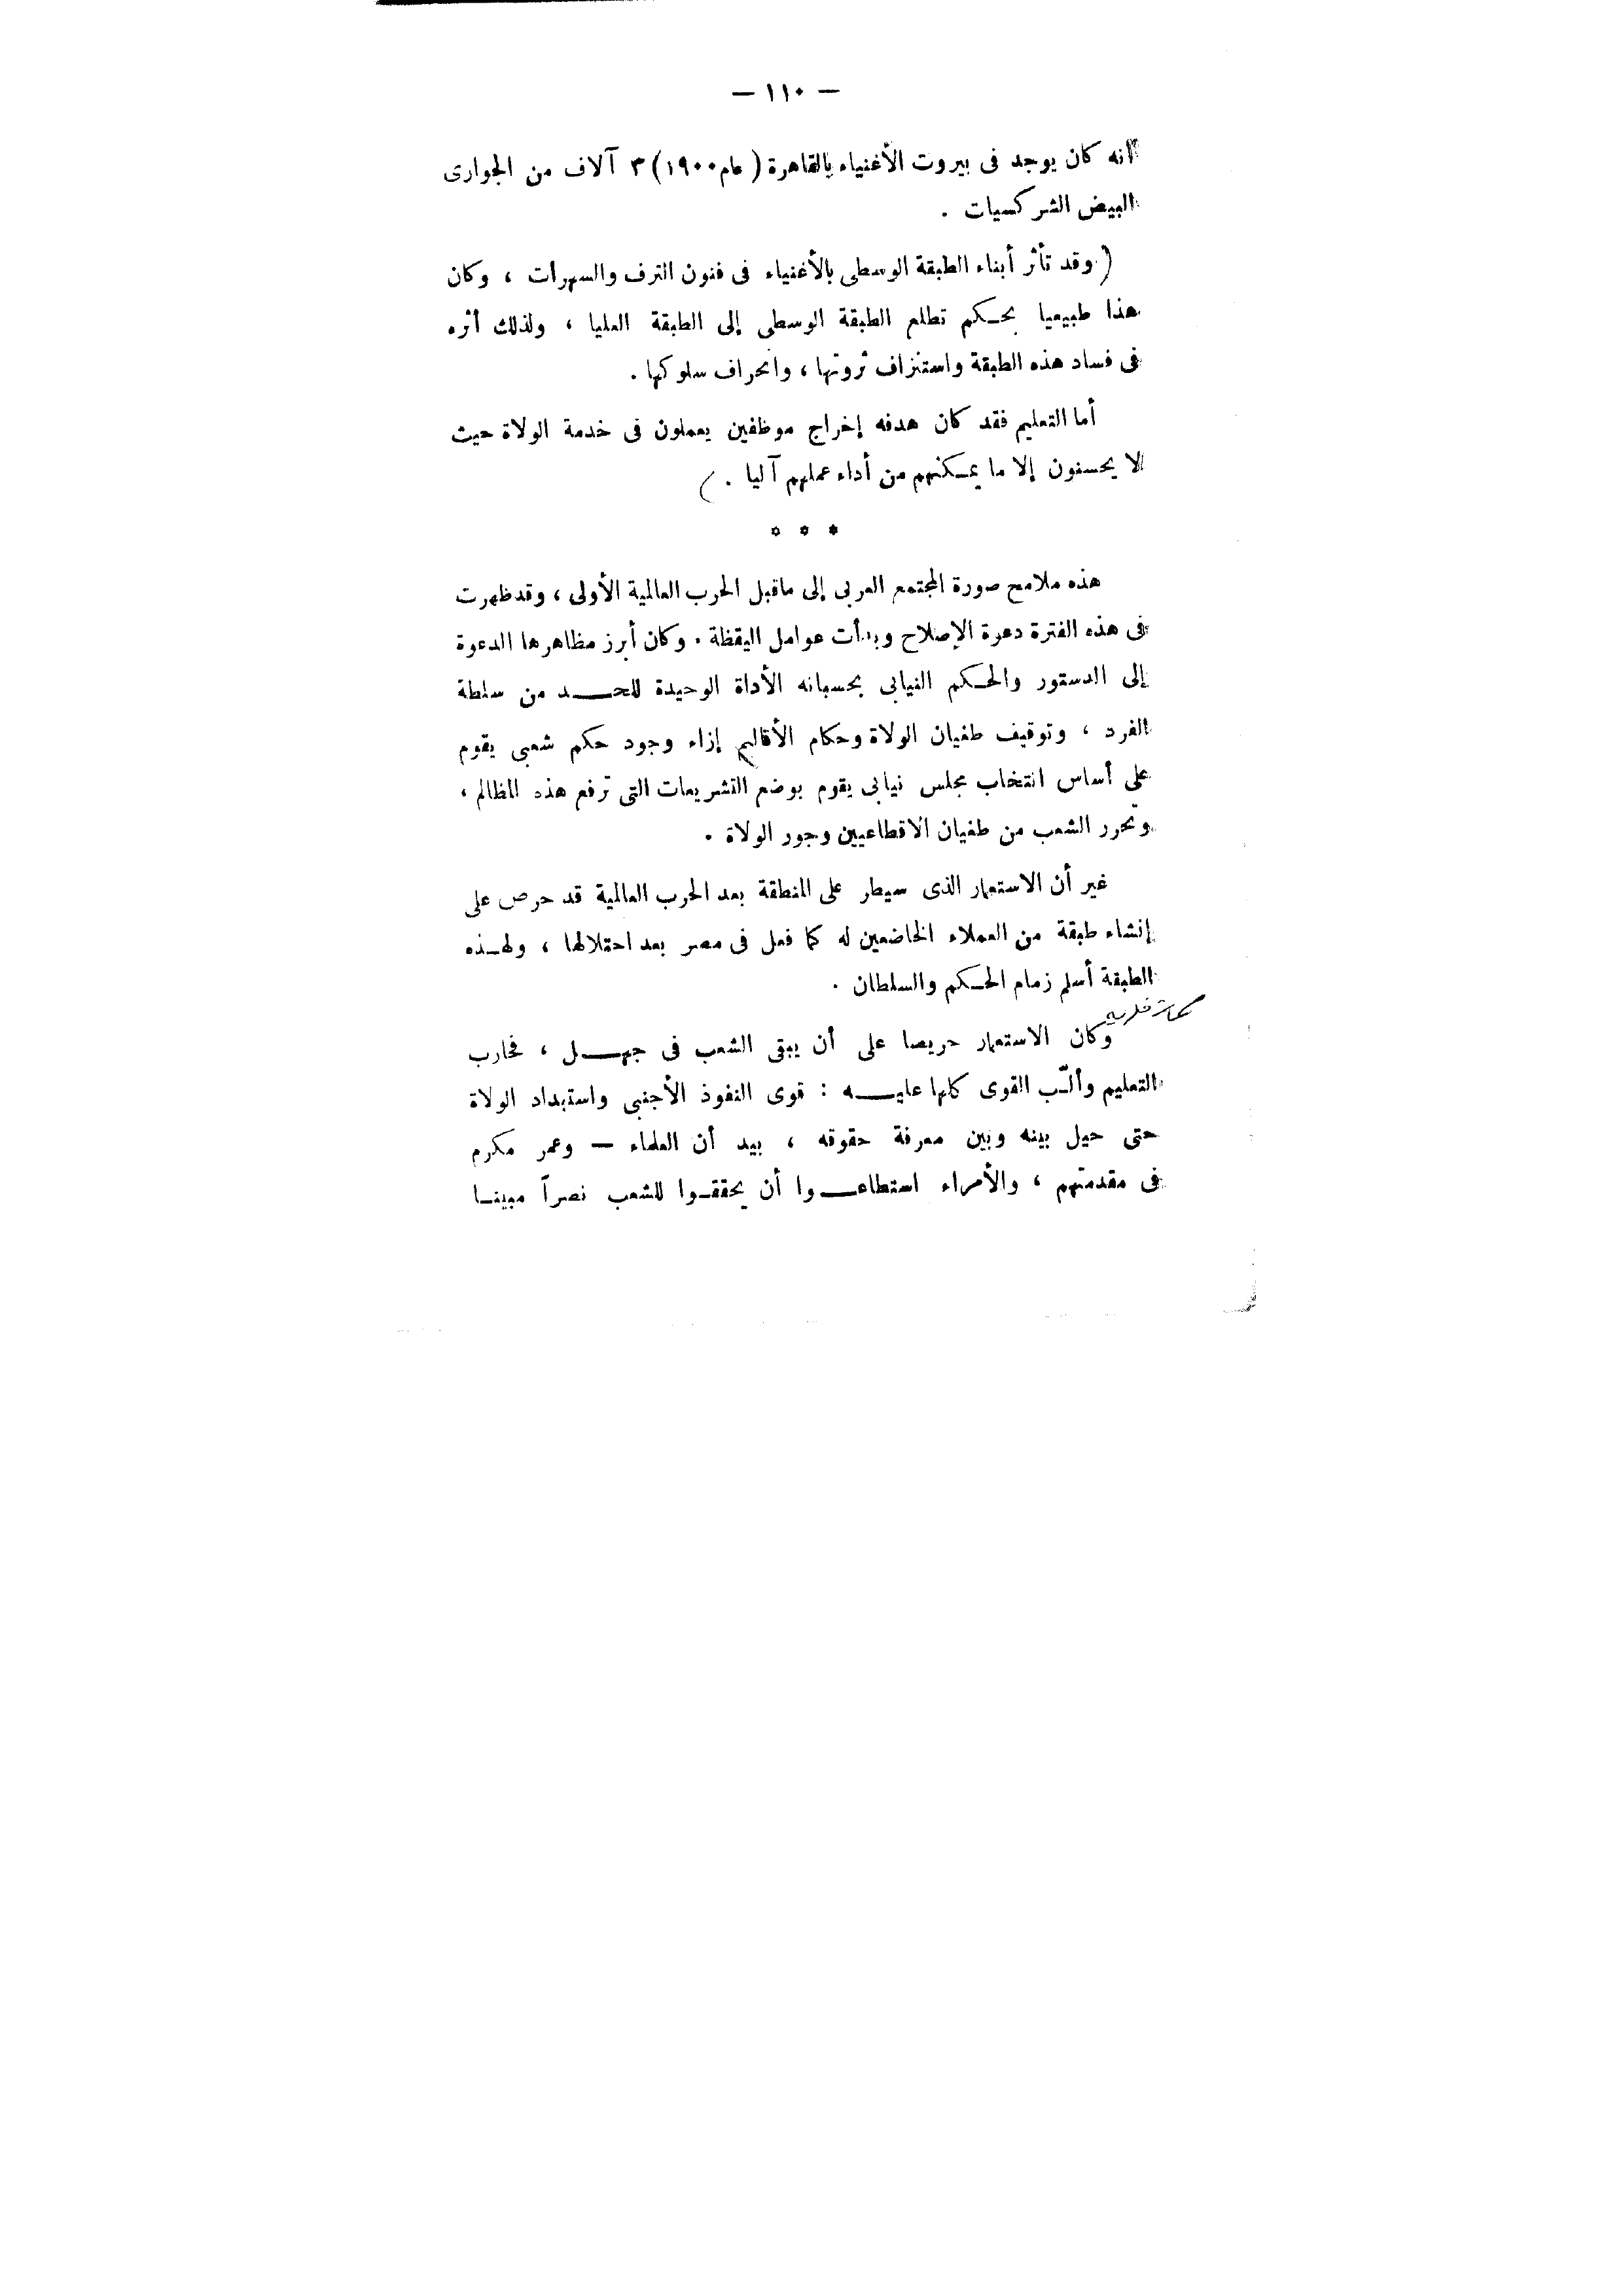 — ١١٠ —
أنه كان يوجد فى بيروت الأغنياء بالقاهرة ( عام ١٩٠٠ ) ٣ آلاف من الجوارى
البيض الشركسيات .
( وقد تأثر أبناء الطبقة الوسطى بالأغنياء فى فنون الترف والسهرات ، وكان
هذا طبيعيا بحكم تطلع الطبقة الوسطى إلى الطبقة العليا ، ولذلك أثره
فى فساد هذه الطبقة واستنزاف ثروتها ، وانحراف سلوكها .
أما التعليم فقد كان هدفه إخراج موظفين يعملون فى خدمة الولاة حيث
لا يحسنون إلا ما يمكنهم من أداء عملهم آليا . )
* * *
هذه ملامح صورة المجتمع العربى إلى ماقبل الحرب العالمية الأولى ، وقد ظهرت
فى هذه الفترة دعوة الإصلاح وبدأت عوامل اليقظة . وكان أبرز مظاهرها الدعوة
إلى الدستور والحكم النيابى بحسبانه الأداة الوحيدة للحد من سلطة
الفرد ، وتوقيف طغيان الولاة وحكام الأقاليم إزاء وجود حكم شعبى يقوم
على أساس انتخاب مجلس نيابى يقوم بوضع التشريعات التى ترفع هذه المظالم ،
وتحرر الشعب من طغيان الاقطاعيين وجور الولاة .
غير أن الاستعمار الذى سيطر على المنطقة بعد الحرب العالمية قد حرص على
إنشاء طبقة من العملاء الخاضعين له كما فعل فى مصر بعد احتلالها ، ولهذه
الطبقة أسلم زمام الحكم والسلطان .
وكان الاستعمار حريصا على أن يبقى الشعب فى جهل ، فحارب
التعليم وألّب القوى كلها عليه : قوى النفوذ الأجنبى واستبداد الولاة
حتى حيل بينه وبين معرفة حقوقه ، بيد أن العلماء — وعمر مكرم
فى مقدمتهم ، والأمراء استطاعوا أن يحققوا للشعب نصراً مبينا